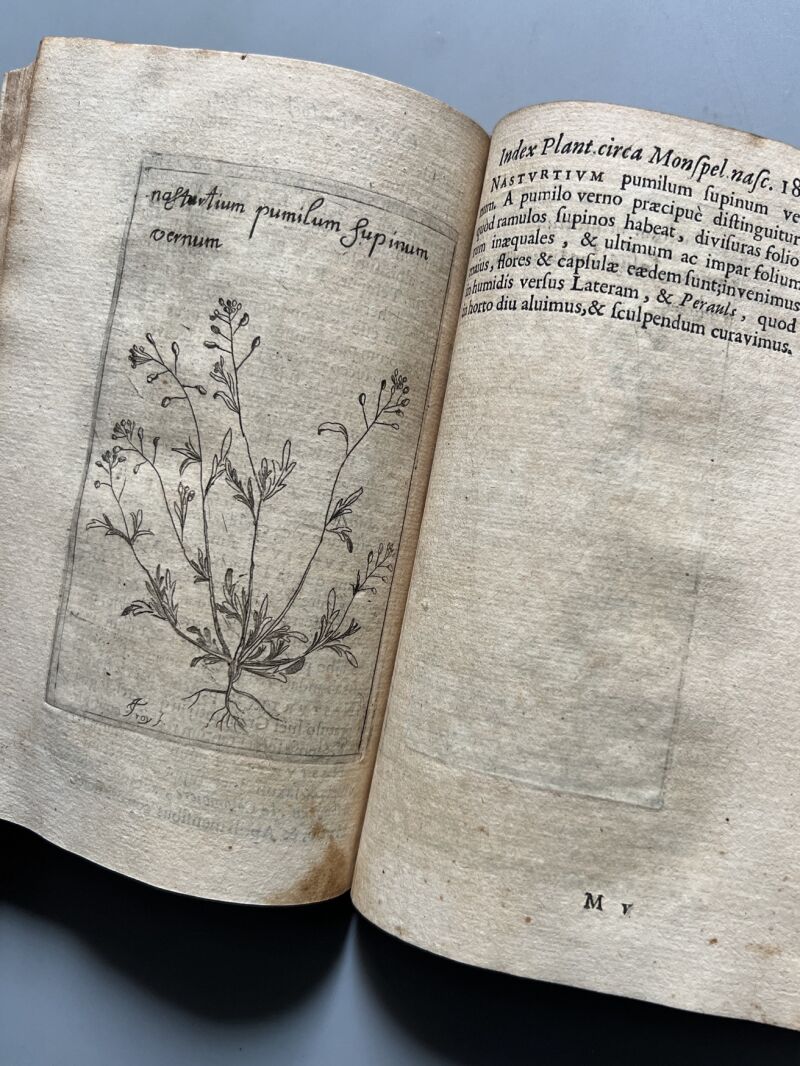 nasturtium pumilum supinum
vernum
Troy f.
Index Plant. circa Monſpel. naſc. 18
NASTVRTIVM pumilum ſupinum ve
num. A pumilo verno præcipuè diſtinguitur
quòd ramulos ſupinos habeat, diviſuras folio
rum inæquales, & ultimum ac impar folium
maius, flores & capſulæ eædem ſunt; invenimus
in humidis verſus Lateram, & Perauls, quod
in horto diu aluimus, & ſculpendum curavimus.
M v